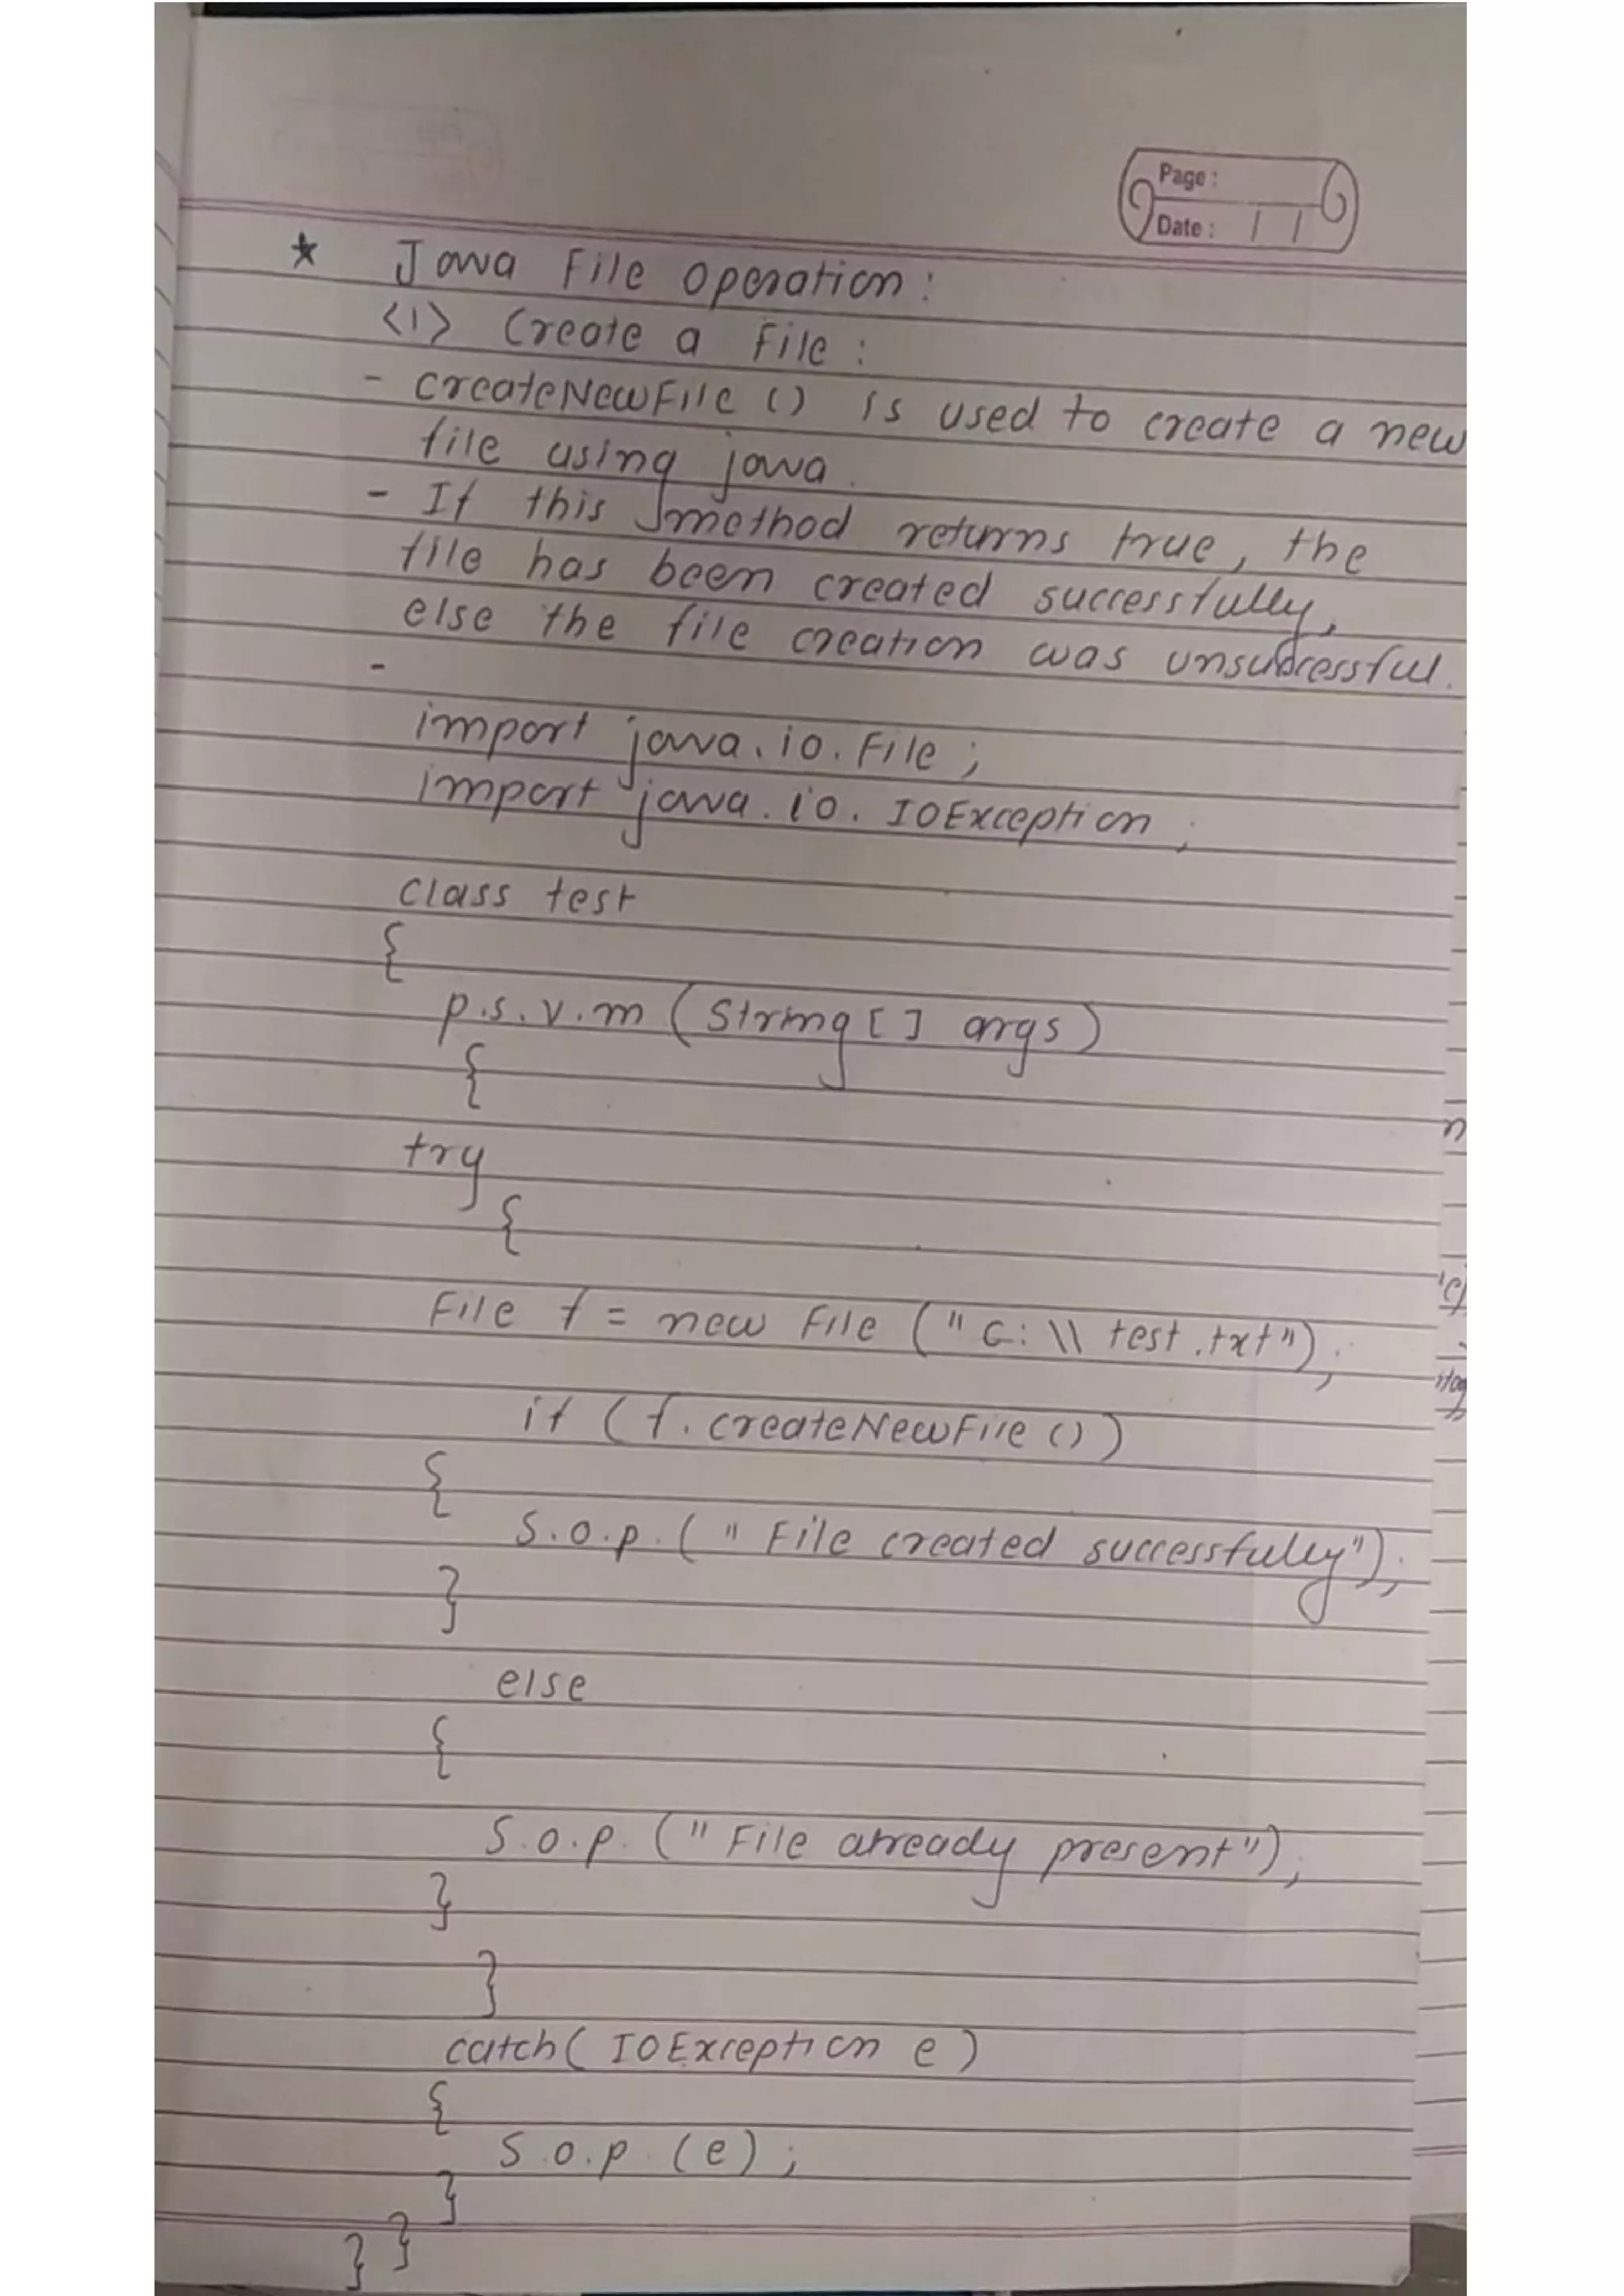 Page :
Date : / /
* Java File Operation :
<1> Create a File :
- createNewFile () is used to create a new
file using java.
- If this method returns true, the
file has been created successfully,
else the file creation was unsuccessful.
-
import java.io.File ;
import java.io.IOException ;
class test
{
p.s.v.m (String [] args)
{
try
{
File f = new File ("G:\\ test.txt");
if (f.createNewFile ())
{
S.o.p. (" File created successfully");
}
else
{
S.o.p. (" File already present");
}
}
catch( IOException e )
{
S.o.p. (e) ;
}
} }